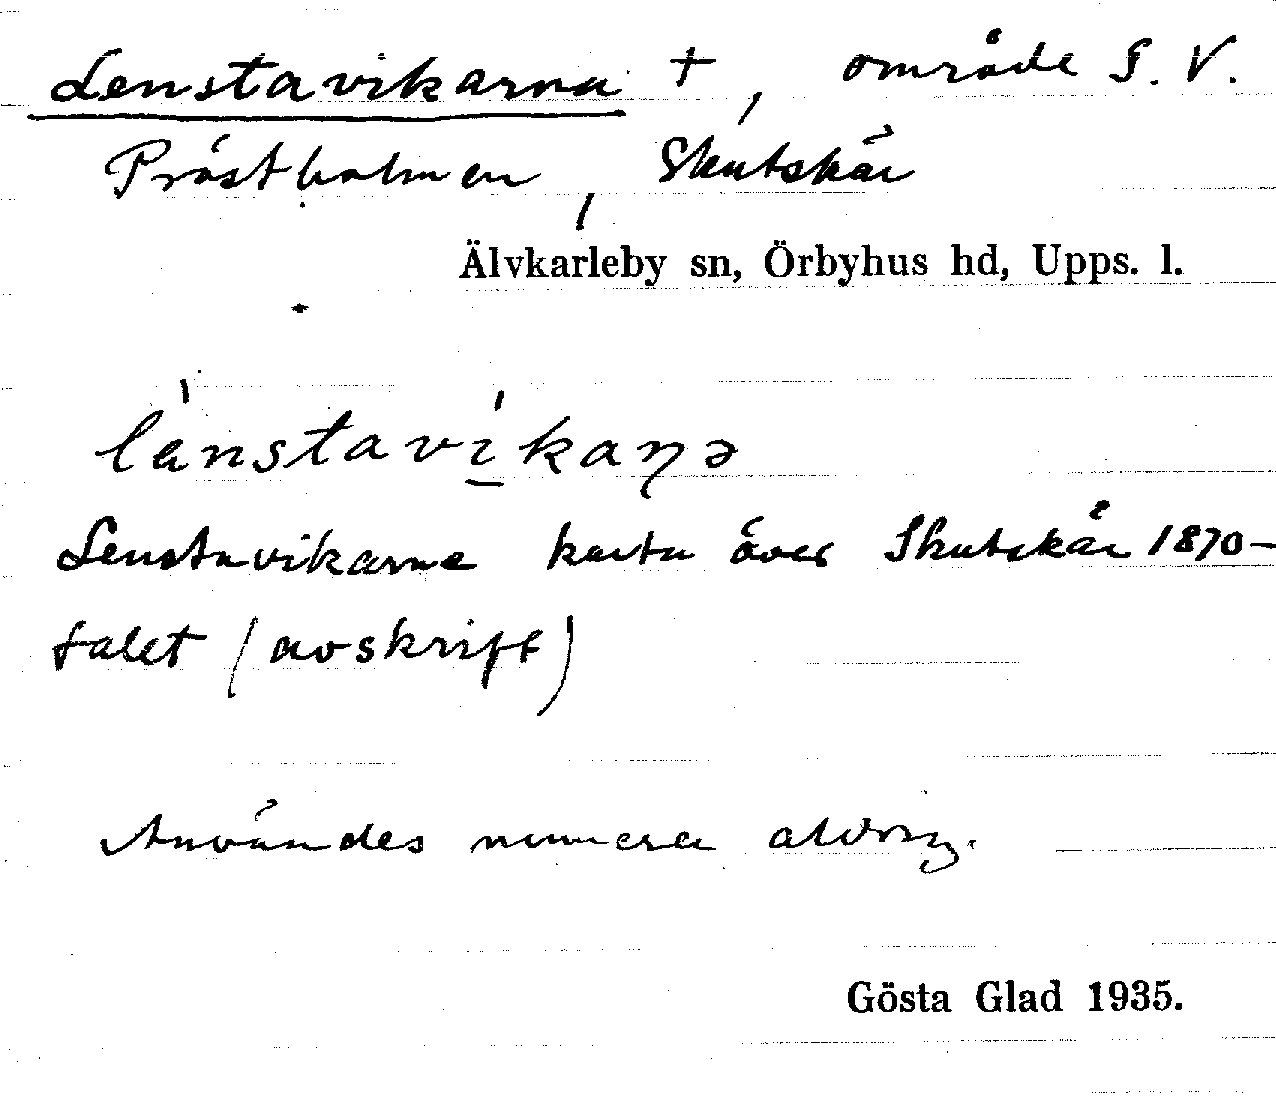 Lenstavikarna +, område S. V.
Prästholmen, Skutskär
Älvkarleby sn, Örbyhus hd, Upps. l.
lä̀nstavíkaƞə
Lenstavikarne karta över Skutskär 1870-
talet (avskrift)
Användes numera aldrig.
Gösta Glad 1935.